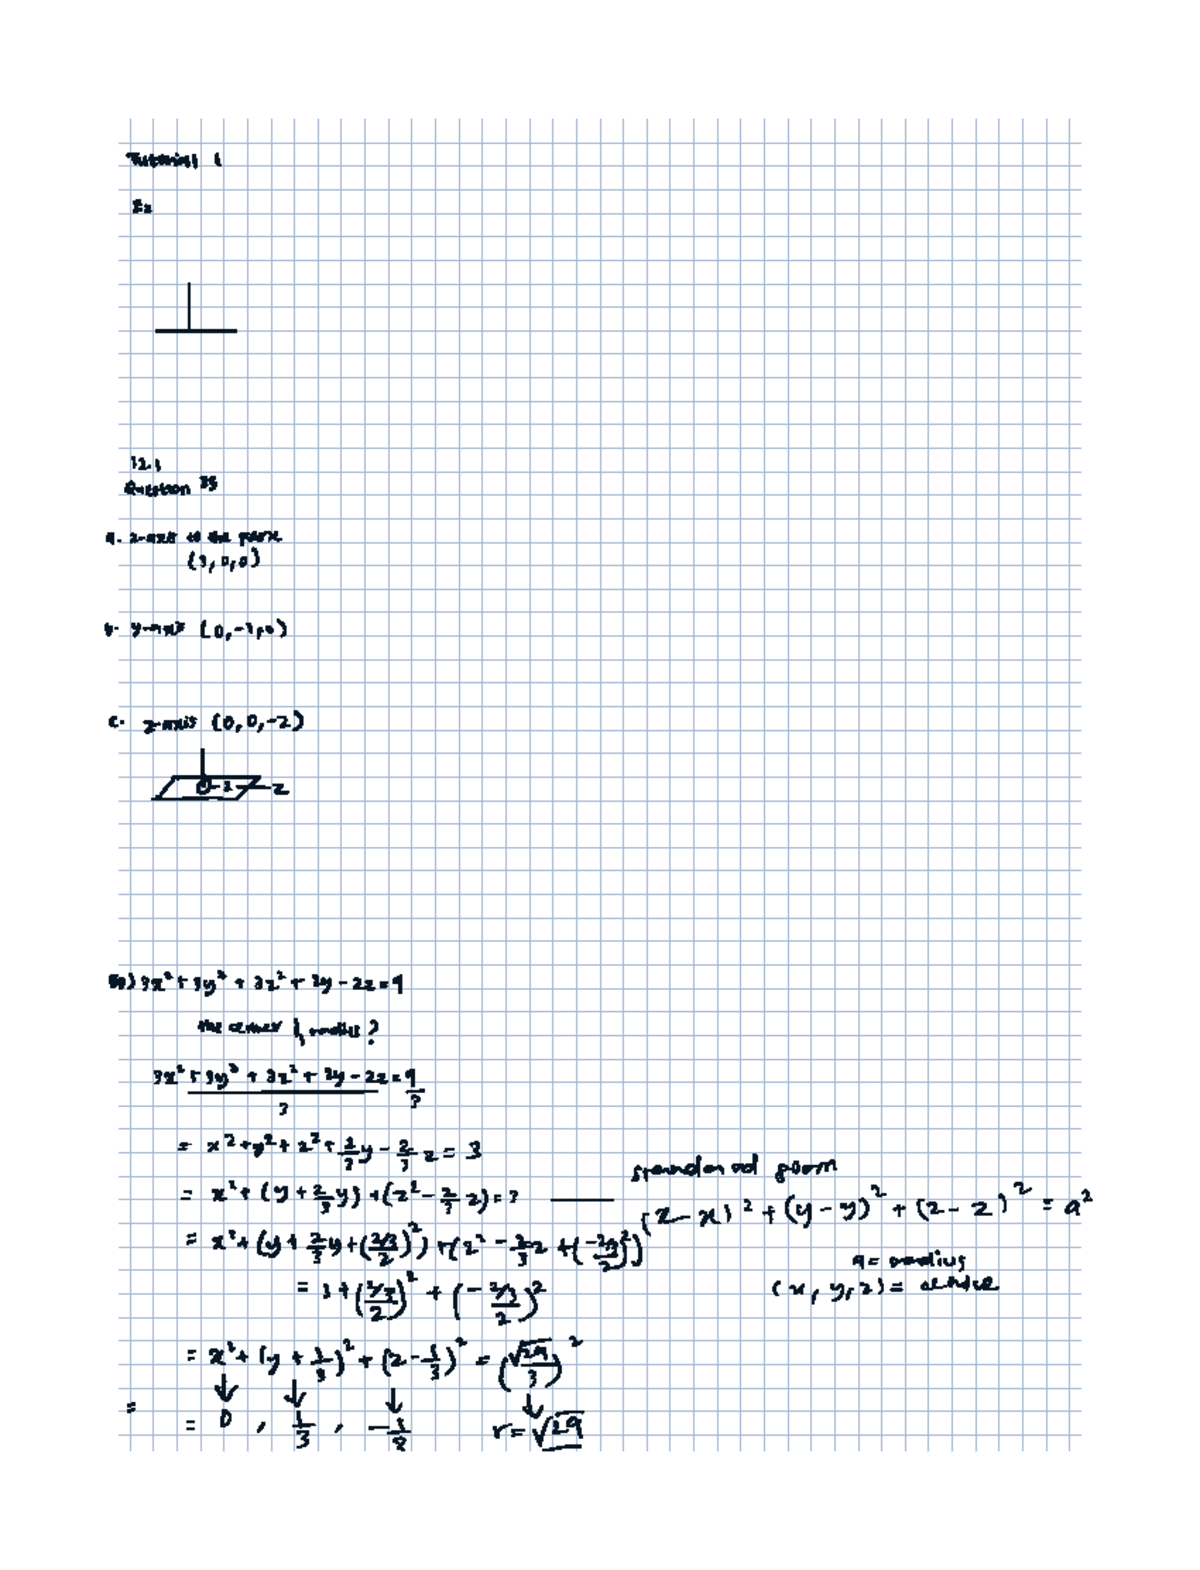 Tutorial 1
12.1
Question 35
a. x-axis to the
(3, 0, 0)
b. y-axis (0, -1, 0)
c. z-axis (0, 0, -2)
3x² + 3y² + 3z² + 2y - 2z = 9
the center & radius?
3x² + 3y² + 3z² + 2y - 2z = 9
3
3
= x² + y² + z² + 2/3 y - 2/3 z = 3
= x² + (y + 2/3 y) + (z² - 2/3 z) = 3
standard form
(x - x)² + (y - y)² + (z - z)² = a²
= x² + (y + 2/3 y + (2/3/2)²) + (z² - 2/3 z + (-2/3/2)²)
a = radius
= 3 + (2/3/2)² + (-2/3/2)²
(x, y, z) =
= x² + (y + 1/3)² + (z - 1/3)² = (√29/3)²
=
= 0, 1/3, -1/3 r = √29